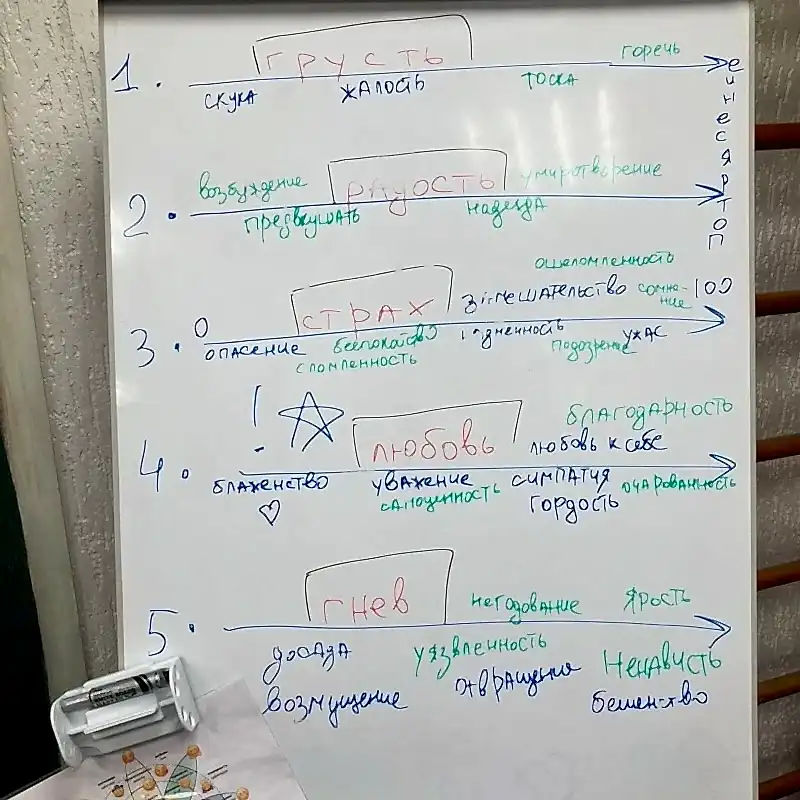 1. ГРУСТЬ
горечь
скука жалость тоска
потрясение
2. РАДОСТЬ
возбуждение умиротворение
предвкушать надежда
3. СТРАХ
ошеломленность
0 замешательство сомне-
ние 100
опасение беспокойство
подозрение ужас
сломленность
4. ! ЛЮБОВЬ
благодарность
любовь к себе
блаженство уважение симпатия очарованность
самоценность гордость
5. ГНЕВ
негодование ярость
досада уязвленность отвращение ненависть
возмущение бешенство